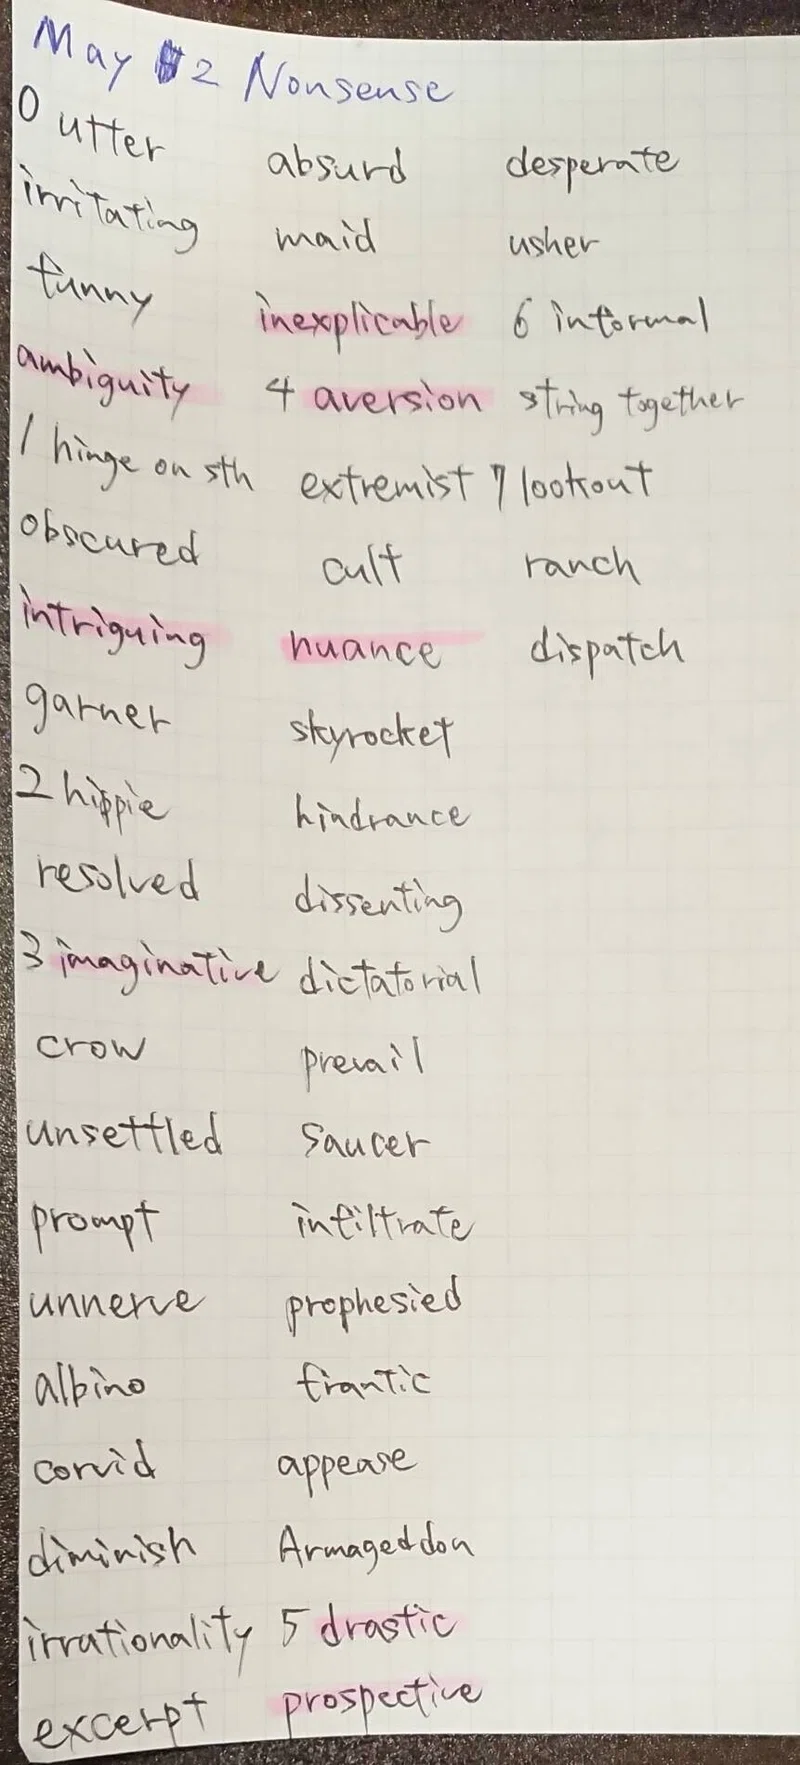 May #2 Nonsense
0 utter
irritating
funny
ambiguity
1 hinge on sth
obscured
intriguing
garner
2 hippie
resolved
3 imaginative
crow
unsettled
prompt
unnerve
albino
corvid
diminish
irrationality
excerpt
absurd
maid
inexplicable
4 aversion
extremist
cult
nuance
skyrocket
hindrance
dissenting
dictatorial
prevail
saucer
infiltrate
prophesied
frantic
appease
Armageddon
5 drastic
prospective
desperate
usher
6 informal
string together
7 lookout
ranch
dispatch